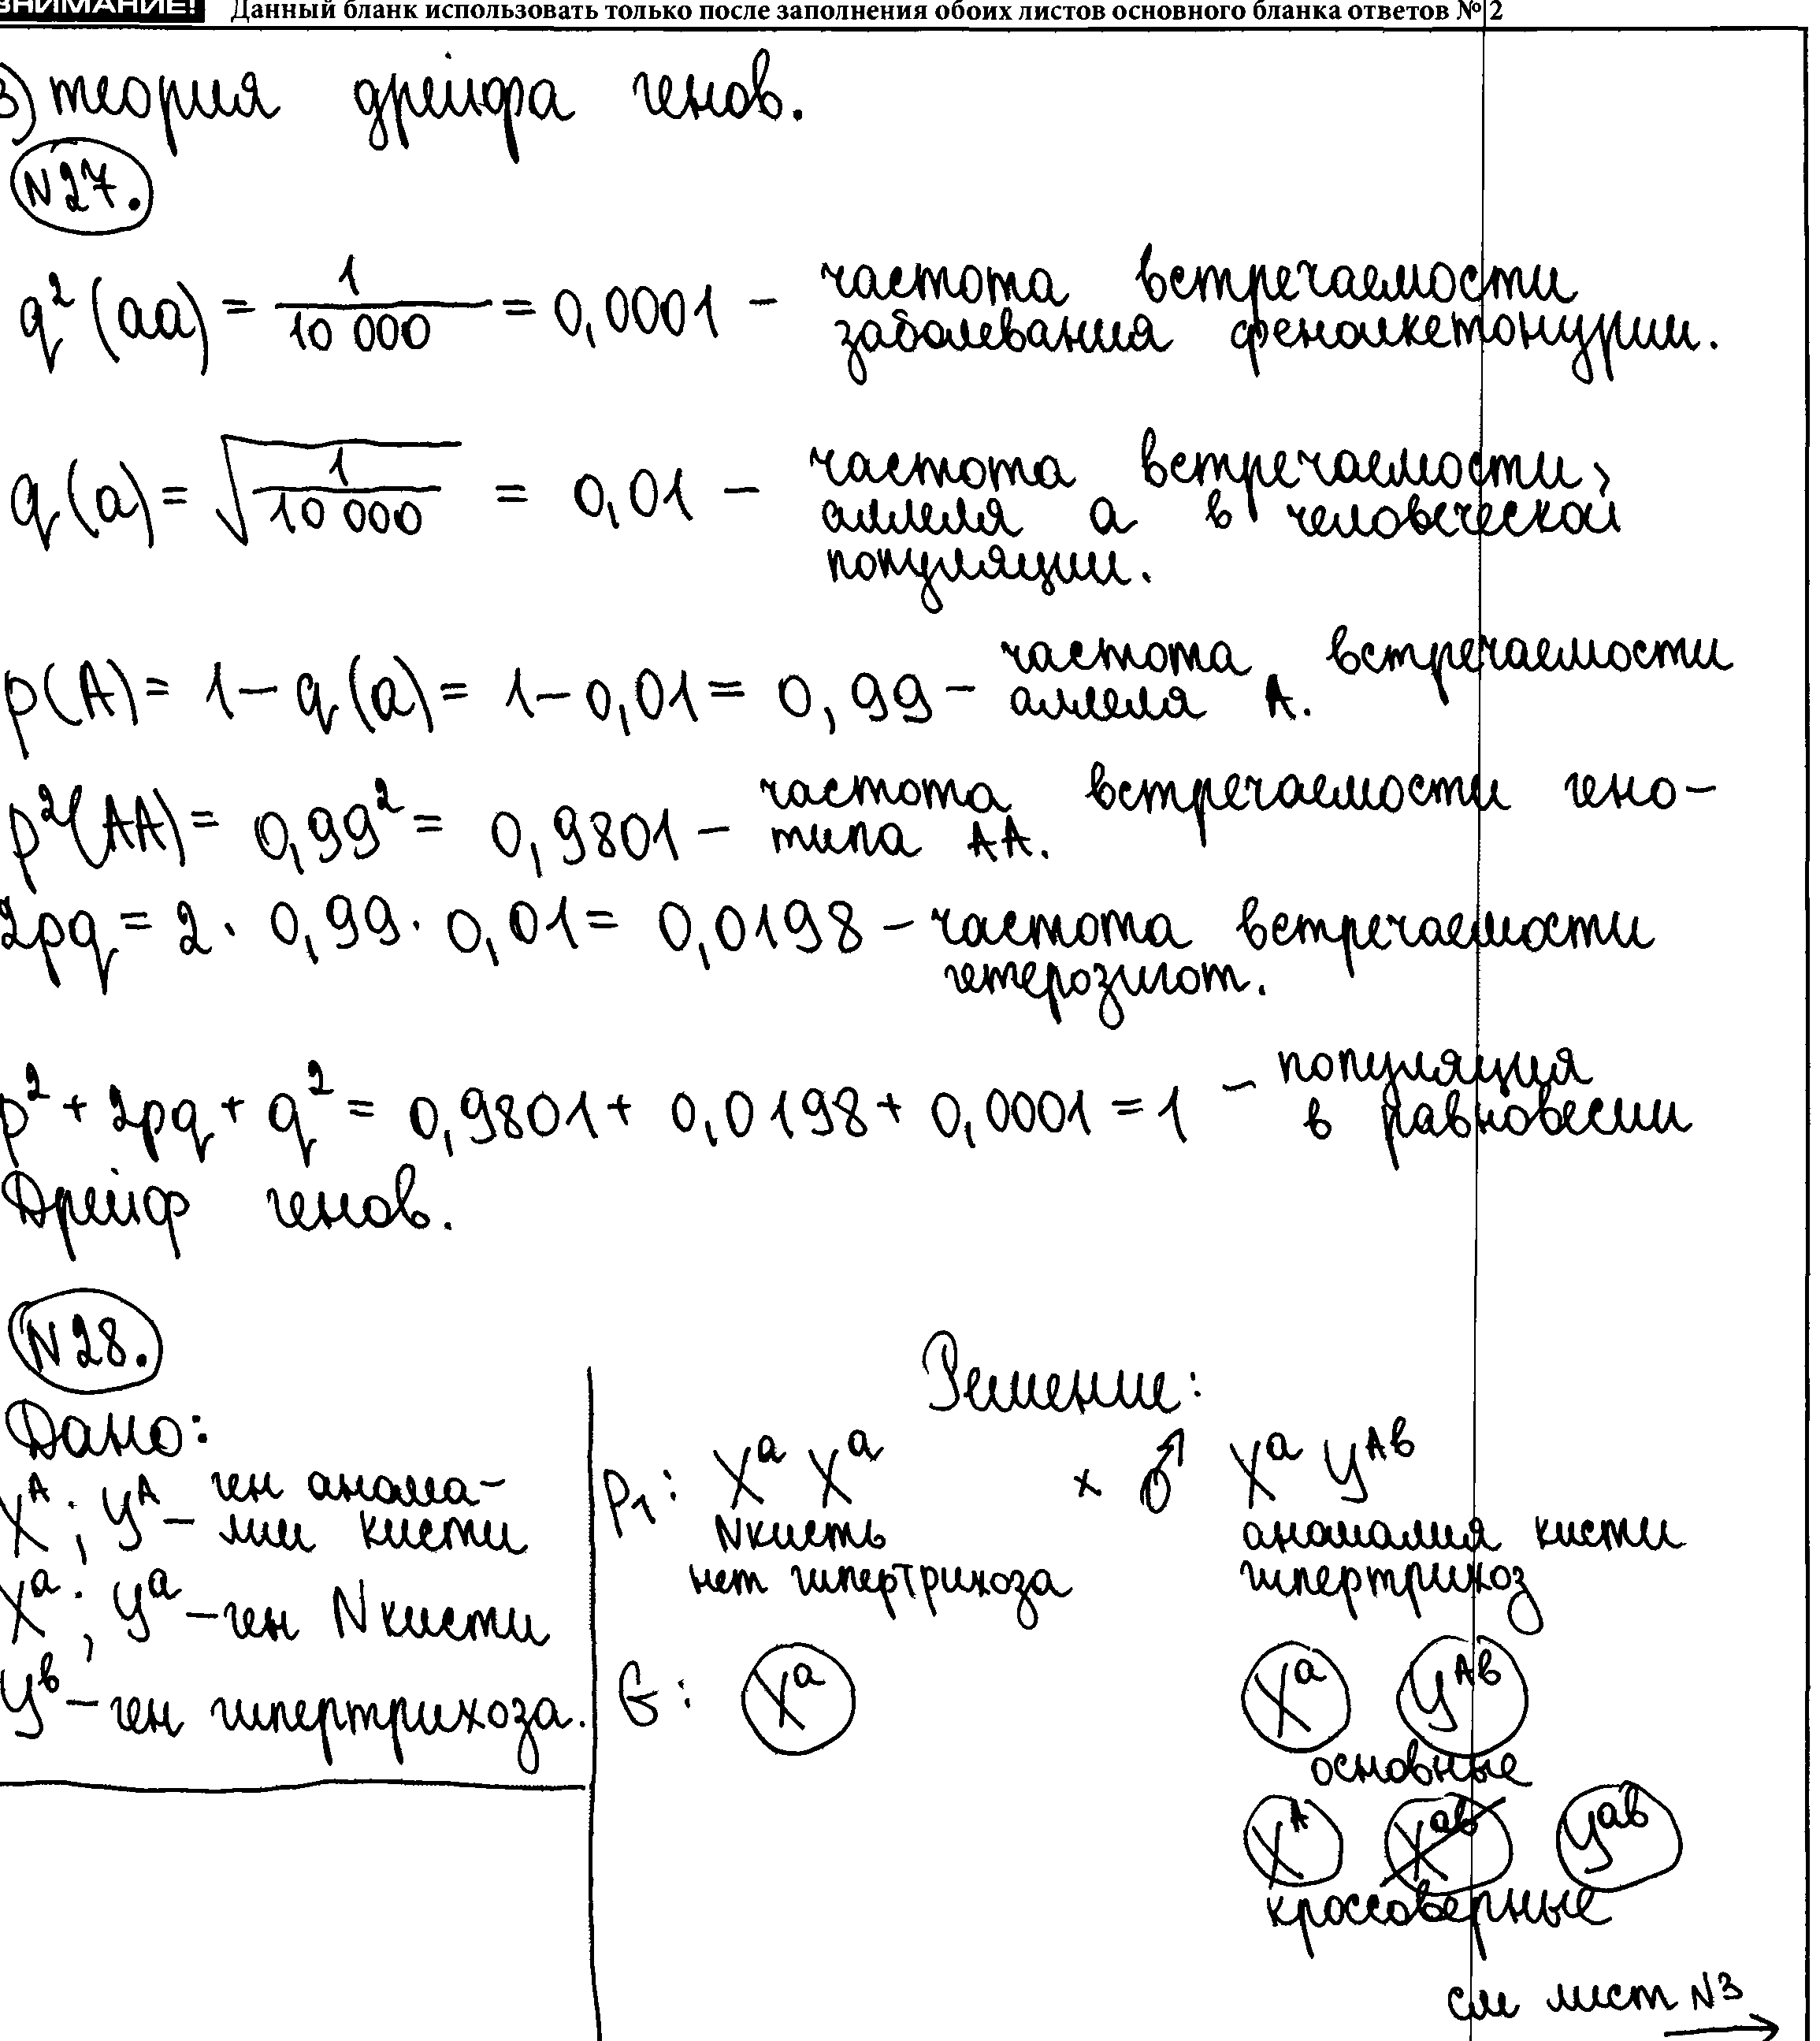 ВНИМАНИЕ! Данный бланк использовать только после заполнения обоих листов основного бланка ответов № 2
3) теория дрейфа генов.
N27.
q²(аа) = 1/10 000 = 0,0001 – частота встречаемости
заболевания фенолкетонурии.
q(а) = √(1/10 000) = 0,01 – частота встречаемости
аллеля а в человеческой
популяции.
p(А) = 1 – q(а) = 1 – 0,01 = 0,99 – частота встречаемости
аллеля А.
p²(АА) = 0,99² = 0,9801 – частота встречаемости гено-
типа АА.
2pq = 2 · 0,99 · 0,01 = 0,0198 – частота встречаемости
гетерозигот.
p² + 2pq + q² = 0,9801 + 0,0198 + 0,0001 = 1 – популяция
в равновесии
Дрейф генов.
N28.
Дано:
Xᴬ; Yᴬ – ген анома-
лии кисти
Xᵃ; Yᵃ – ген N кисти
Yᵇ – ген гипертрихоза.
Решение:
P₁: Xᵃ Xᵃ × ♂ Xᵃ Yᴬᵇ
N кисть аномалия кисти
нет гипертрихоза гипертрихоз
G: Xᵃ Xᵃ Yᴬᵇ
основные
Xᴬ Xᵃᵇ Yᵃᵇ
кроссоверные
см лист N3
→